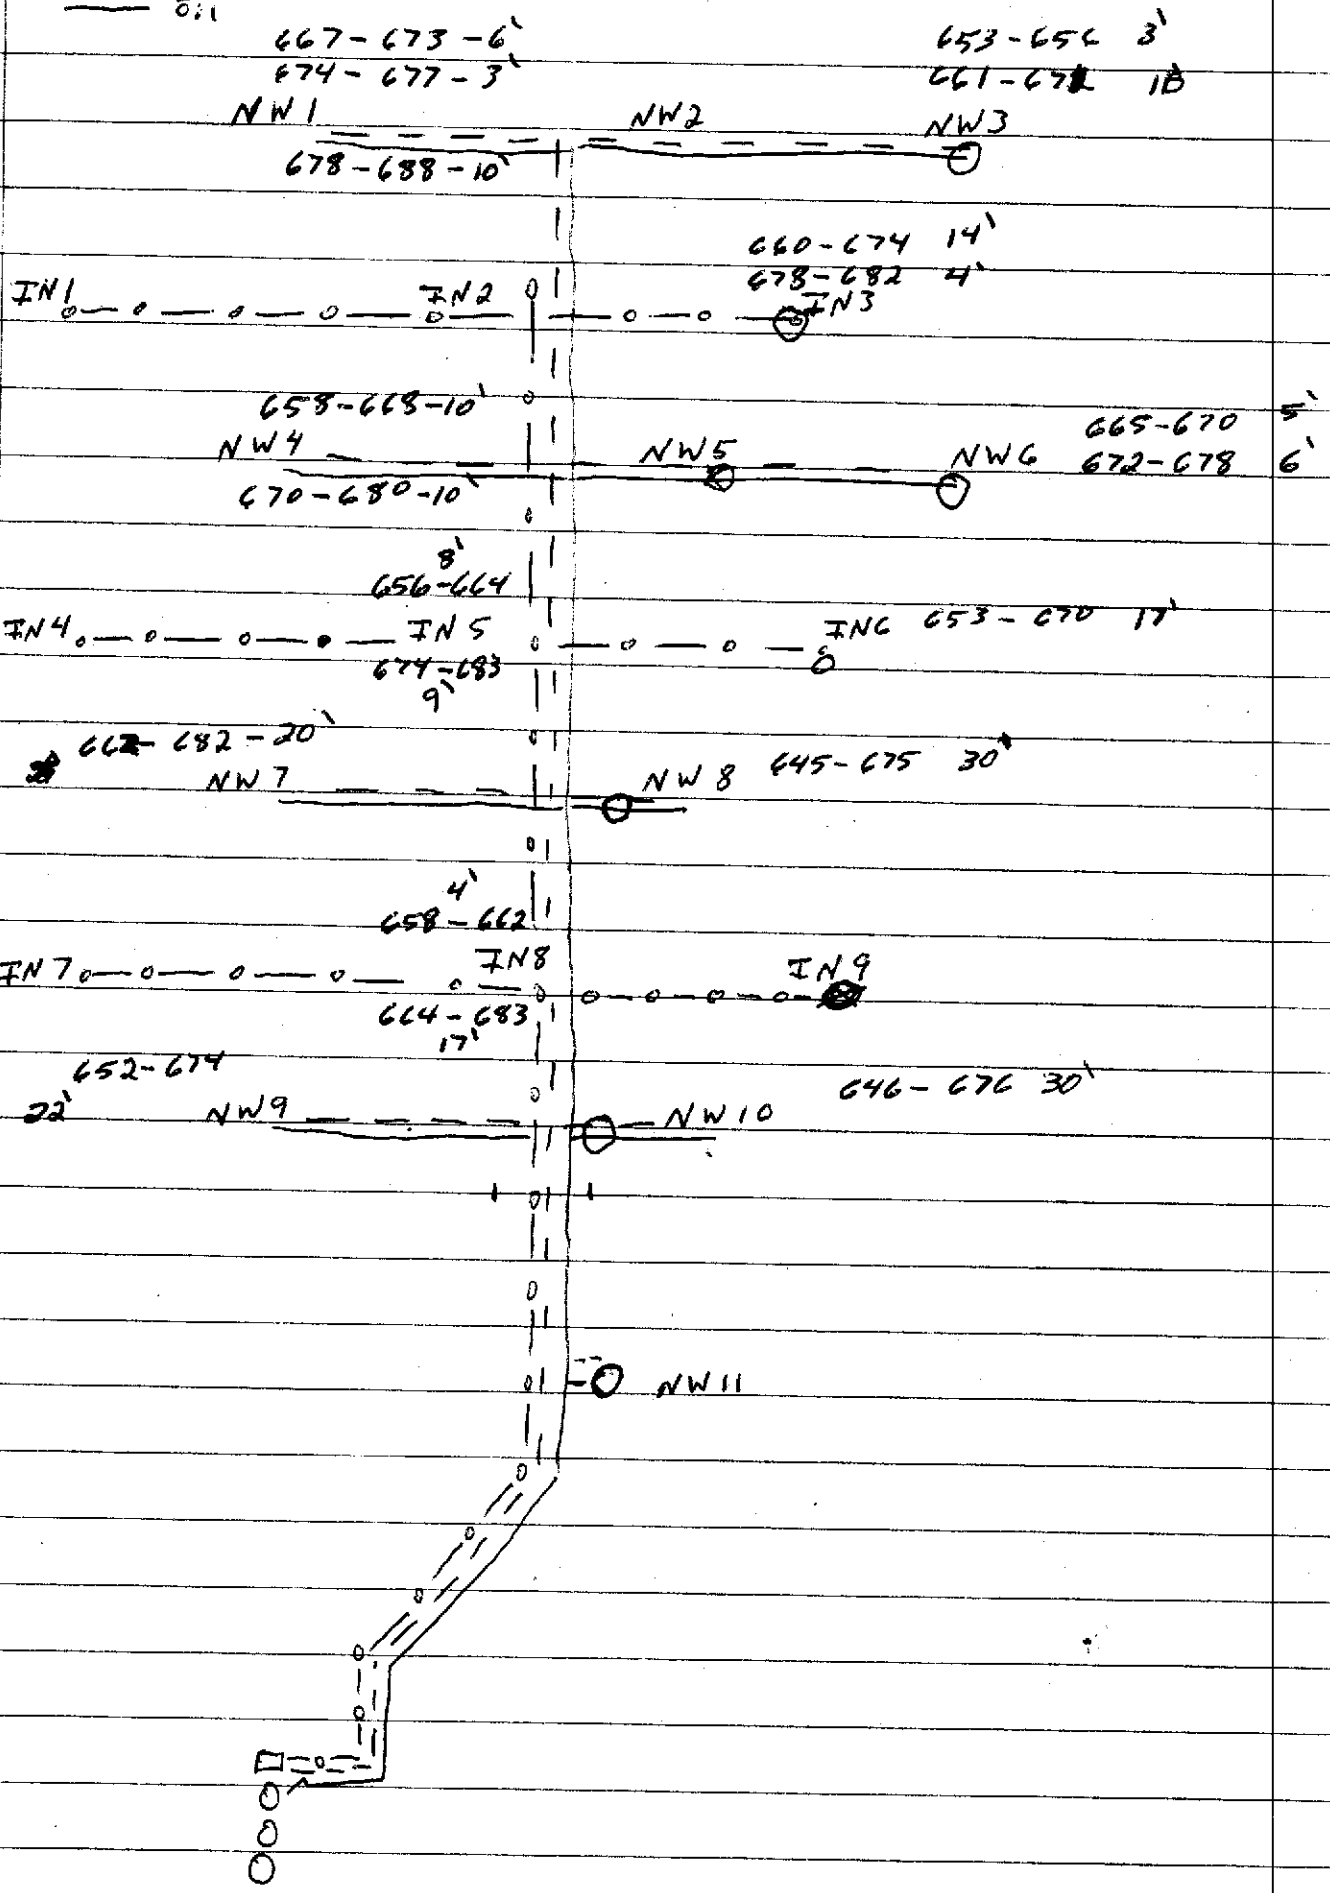 oil
667-673-6'
674-677-3'
653-656 3'
661-671 10
NW1
NW2
NW3
678-688-10'
660-674 14'
678-682 4'
IN1
IN2
IN3
658-668-10'
665-670 5'
NW4
NW5
NW6
672-678 6'
670-680-10'
8'
656-664
IN4
IN5
IN6 653-670 17'
674-683
9'
662-682-20'
NW7
NW8
645-675 30'
4'
658-662
IN7
IN8
IN9
664-683
17'
652-674
22'
NW9
646-676 30'
NW10
NW11